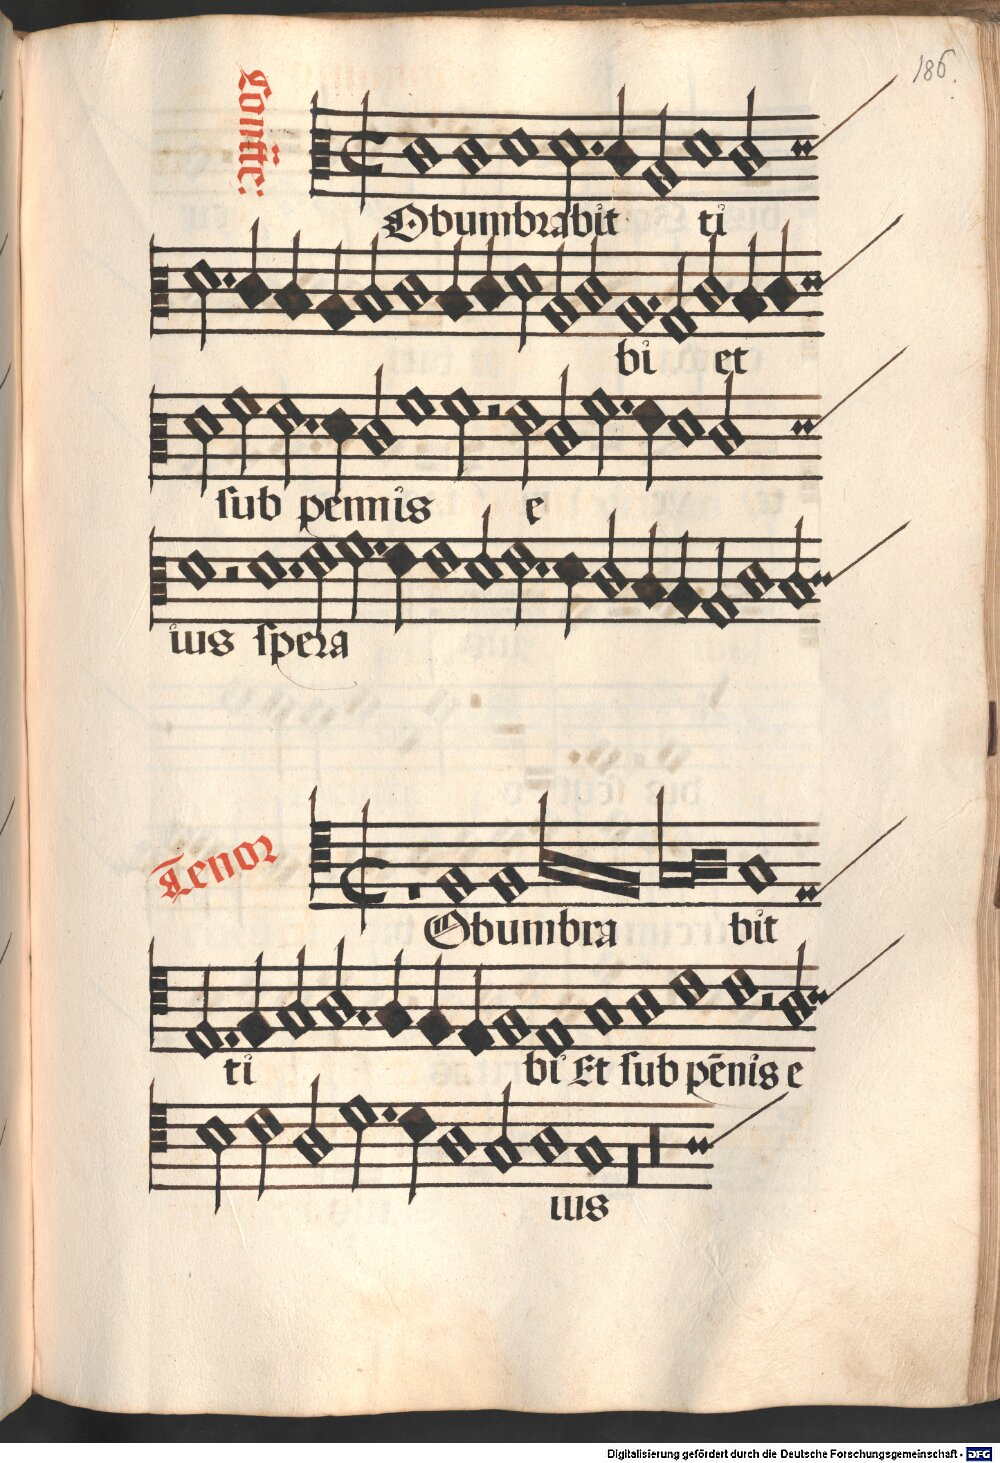 186.
Contrate:
Obumbrabit ti
bi et
sub pennis e
ius spera
Tenor
Obumbra bit
ti bi Et sub pēnis e
ius
Digitalisierung gefördert durch die Deutsche Forschungsgemeinschaft - DFG